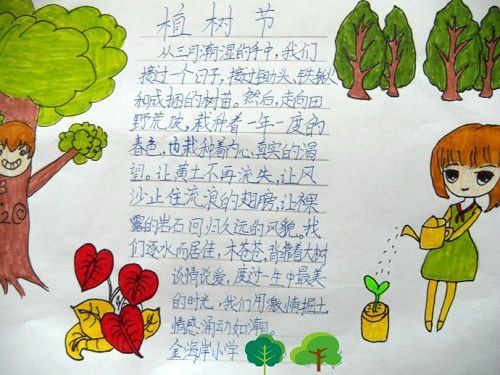 植树节
从三月潮湿的手中，我们
接过一个日子，接过锄头、铁锹
和成捆的树苗。然后，走向田
野荒坡，栽种着一年一度的
春色，也栽种着内心真实的渴
望。让黄土不再流失，让风
沙止住流浪的翅膀，让裸
露的岩石回归久远的风貌。我
们逐水而居住，木苍苍，背靠着大树
谈情说爱，度过一生中最美
的时光，我们用激情掘土，
情感涌动如潮。
金海岸小学